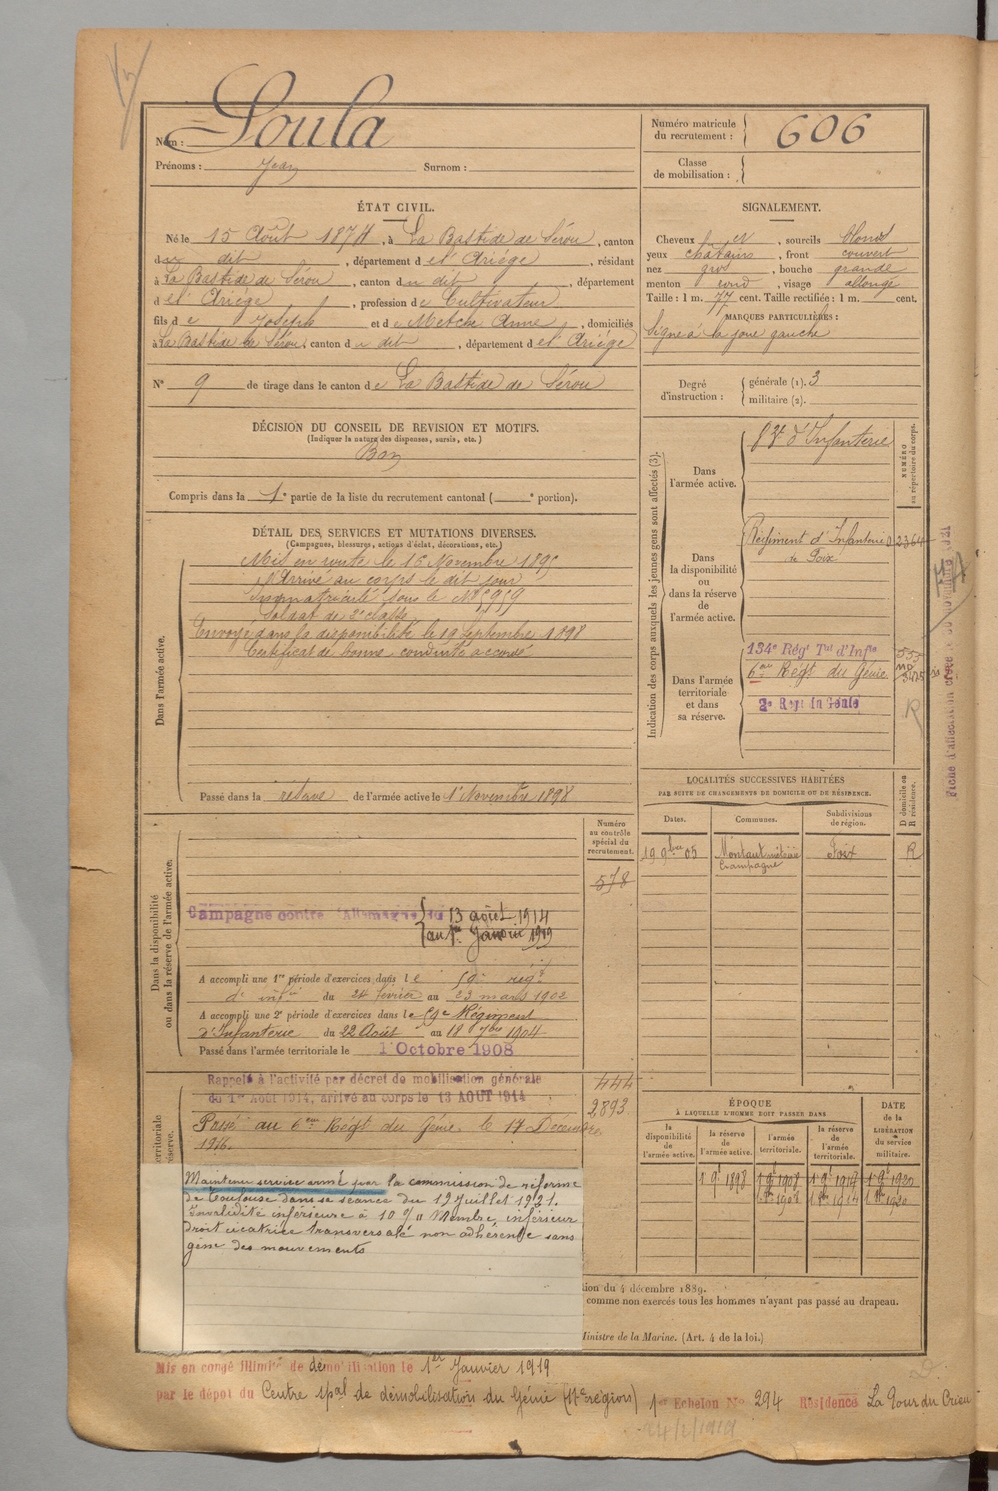 Nom : Soula
Prénoms : Jean Surnom :
Numéro matricule du recrutement : 606
Classe de mobilisation :
ÉTAT CIVIL.
Né le 15 Août 1874, à La Bastide de Sérou, canton
du dit, département de l'Ariége, résidant
à La Bastide de Sérou, canton du dit, département
de l'Ariége, profession de Cultivateur
fils de Joseph et de Metche Anne, domiciliés
à La Bastide de Sérou, canton du dit, département de l'Ariége
N° 9 de tirage dans le canton de La Bastide de Sérou
SIGNALEMENT.
Cheveux et, sourcils blonds
yeux châtains, front couvert
nez gros, bouche grande
menton rond, visage allongé
Taille : 1 m. 77 cent. Taille rectifiée : 1 m. cent.
MARQUES PARTICULIÈRES :
Signe à la joue gauche
Degré d'instruction : générale (1). 3
militaire (2).
DÉCISION DU CONSEIL DE REVISION ET MOTIFS.
(Indiquer la nature des dispenses, sursis, etc.)
Bon
Compris dans la 1e partie de la liste du recrutement cantonal ( e portion).
DÉTAIL DES SERVICES ET MUTATIONS DIVERSES.
(Campagnes, blessures, actions d'éclat, décorations, etc.)
Dans l'armée active.
Mis en route le 16 Novembre 1895
Arrivé au corps le dit jour
Immatriculé sous le N°
Soldat de 2e classe
Envoyé dans la disponibilité le 19 Septembre 1898
Certificat de bonne conduite accordé
Passé dans la réserve de l'armée active le 1er Novembre 1898
Indication des corps auxquels les jeunes gens sont affectés (3).
NUMÉRO au répertoire du corps.
Dans l'armée active.
83e d'Infanterie
Dans la disponibilité ou dans la réserve de l'armée active.
Régiment d'Infanterie 02364
de Foix
Dans l'armée territoriale et dans sa réserve.
134e Régt Tal d'Infie 555
6eme Régt du Génie
2e Regt du Génie
R
Fiche d'affectation
LOCALITÉS SUCCESSIVES HABITÉES
PAR SUITE DE CHANGEMENTS DE DOMICILE OU DE RÉSIDENCE.
Dates. Communes. Subdivisions de région. D domicile ou R résidence.
19 9bre 05 Montaut métairie Foix R
Campagne
Dans la disponibilité ou dans la réserve de l'armée active.
Numéro au contrôle spécial du recrutement.
578
Campagne contre l'Allemagne du 13 août 1914
au 1er Janvier 1919
A accompli une 1re période d'exercices dans le 59e régt
d'infie du 24 février au 23 mars 1902
A accompli une 2e période d'exercices dans le 59e Régiment
d'Infanterie du 22 Août au 18 7bre 1904
Passé dans l'armée territoriale le 1 Octobre 1908
Rappelé à l'activité par décret de mobilisation générale
du 1er Août 1914, arrivé au corps le 13 AOUT 1914
444
2893
Passé au 6eme Régt du Génie le 17 Décembre
1916.
Maintenu service armé par la commission de réforme
de Toulouse dans sa séance du 19 juillet 1921.
Invalidité inférieure à 10 % Membre inférieur
droit cicatrice transversale non adhérente sans
gêne des mouvements
ÉPOQUE
A LAQUELLE L'HOMME DOIT PASSER DANS
la disponibilité de l'armée active. la réserve de l'armée active. l'armée territoriale. la réserve de l'armée territoriale.
DATE DE LA LIBÉRATION du service militaire.
1 9e 1898 1 9e 1908 1 9e 1914 1 9e 1920
tion du 4 décembre 1889.
comme non exercés tous les hommes n'ayant pas passé au drapeau.
Ministre de la Marine. (Art. 4 de la loi.)
Mis en congé illimité de démobilisation le 1er Janvier 1919
par le dépôt du Centre spal de démobilisation du Génie (17e région) 1er Echelon No 294 Résidence La Tour du Crieu
24/2/1919